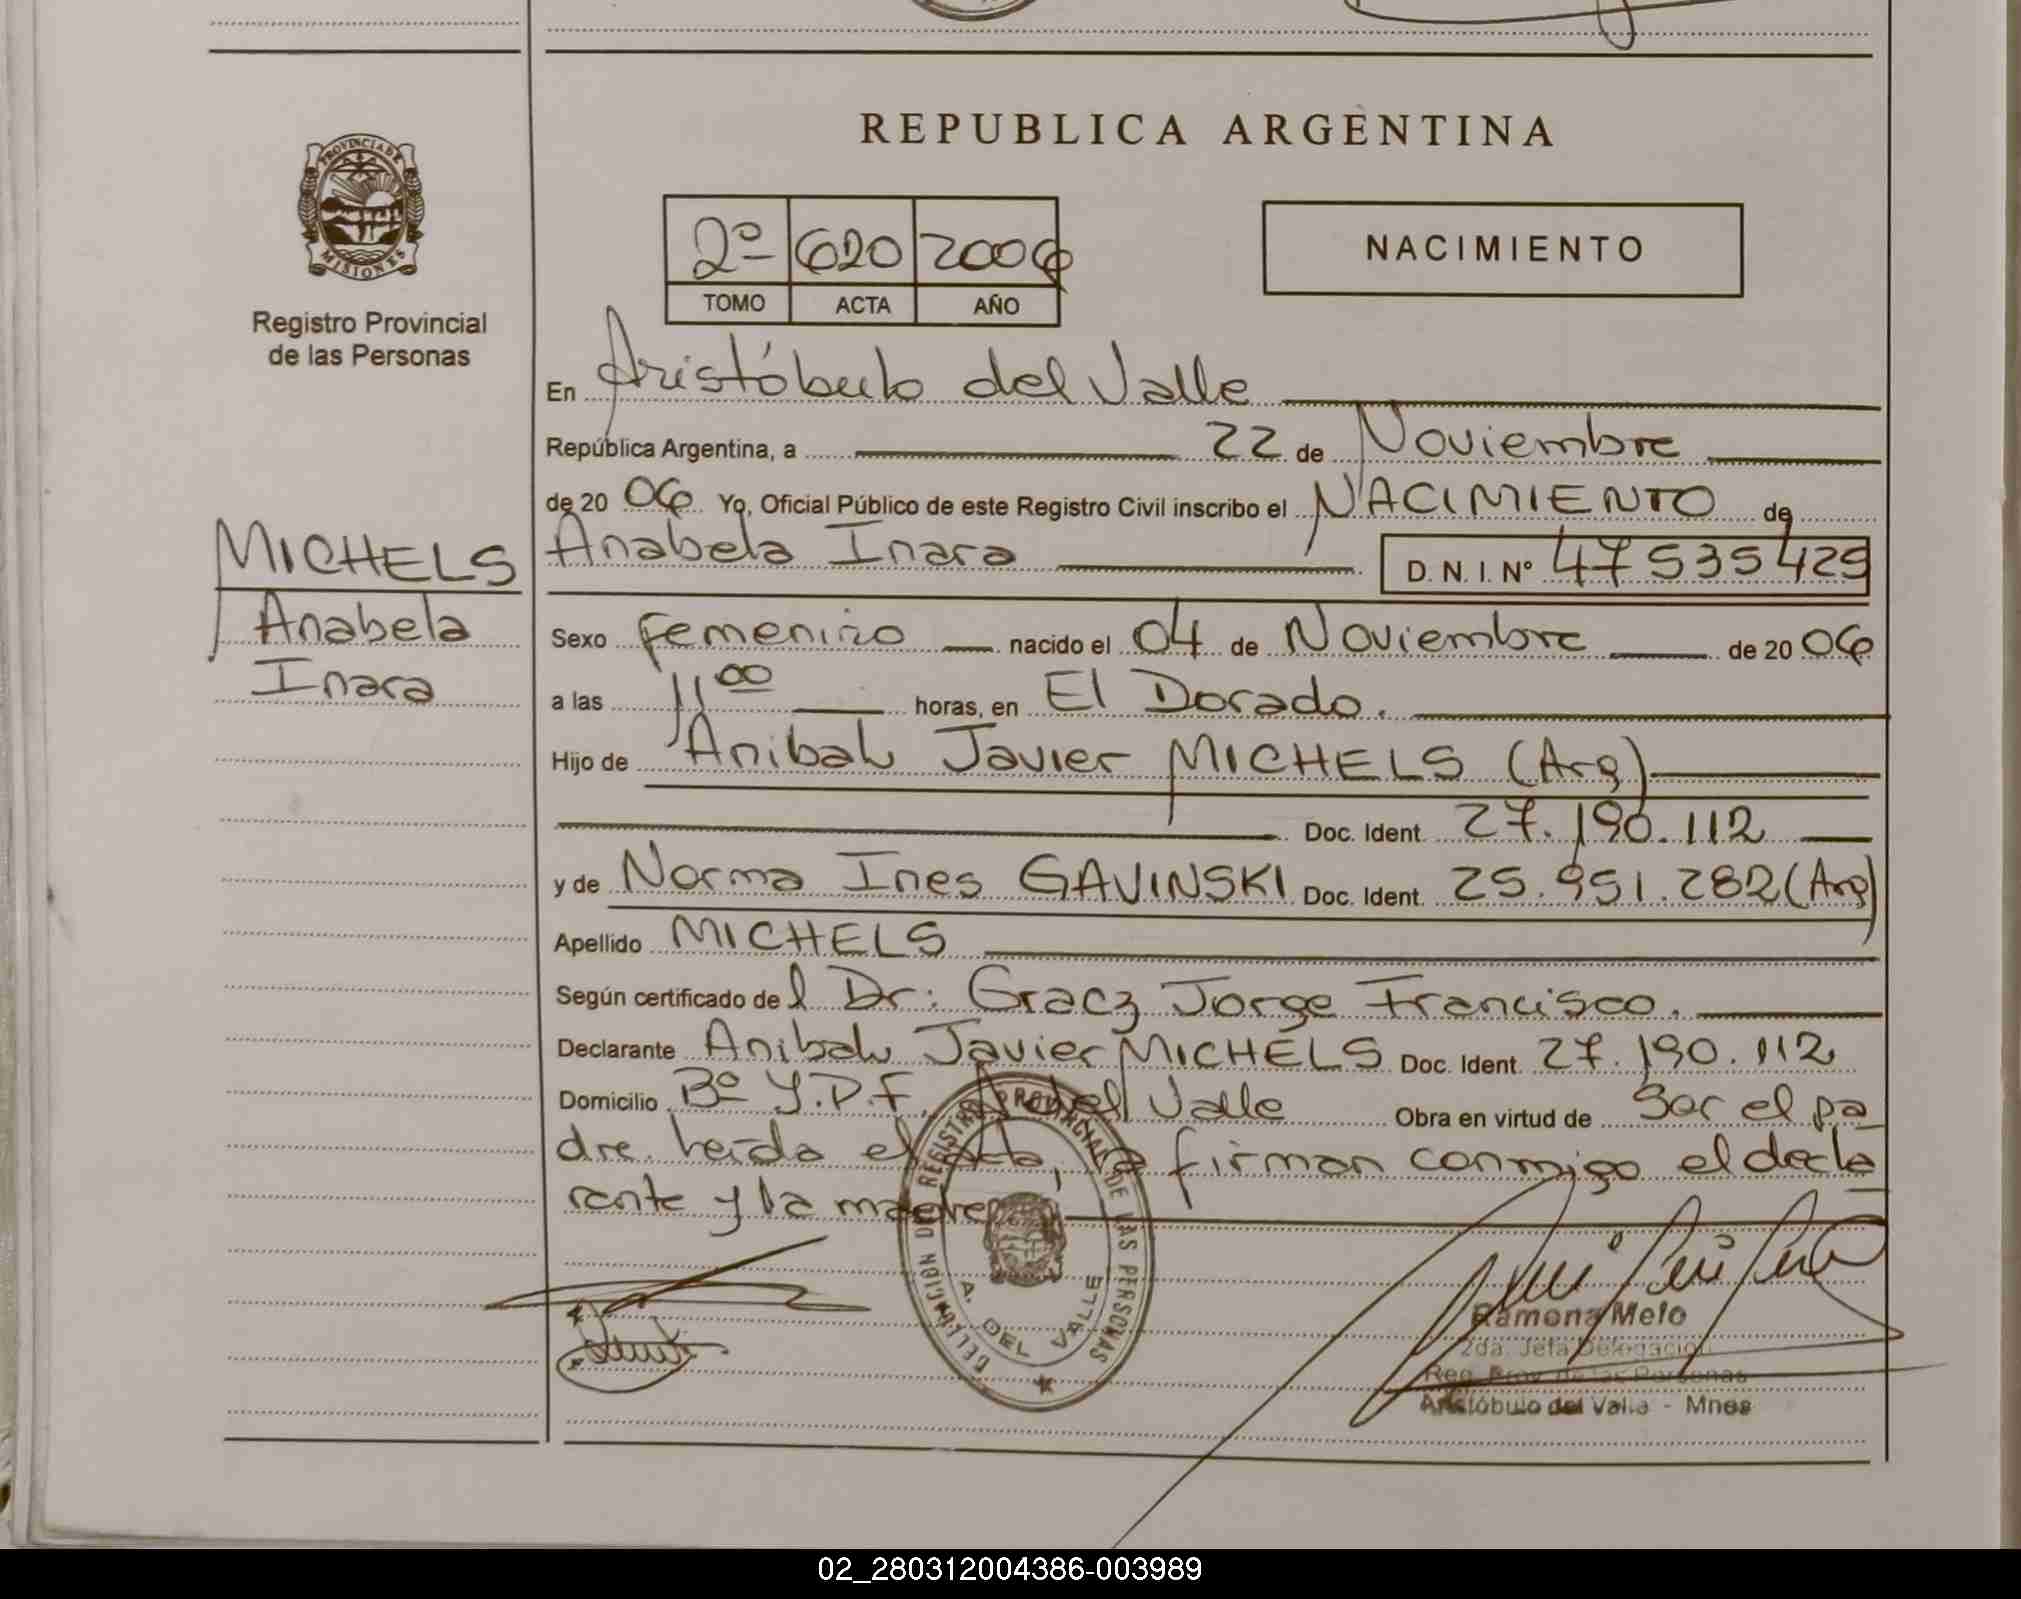 REPUBLICA ARGENTINA
PROVINCIA DE MISIONES
Registro Provincial
de las Personas
2º 620 2006
TOMO ACTA AÑO
NACIMIENTO
En Aristóbulo del Valle
República Argentina, a 22 de Noviembre
de 20 06 Yo, Oficial Público de este Registro Civil inscribo el NACIMIENTO de
MICHELS
Anabela
Inara
Anabela Inara D. N. I. Nº 47535429
Sexo femenino nacido el 04 de Noviembre de 20 06
a las 11 00 horas, en El Dorado.
Hijo de Anibal Javier MICHELS (Arg)
Doc. Ident. 27.190.112
y de Norma Ines GAVINSKI Doc. Ident. 25.951.282 (Arg)
Apellido MICHELS
Según certificado del Dr: Gracz Jorge Francisco.
Declarante Anibal Javier MICHELS Doc. Ident. 27.190.112
Domicilio Bº Y.P.F. A. del Valle Obra en virtud de Ser el pa
dre. Leída el Acta, la firman conmigo el decla
rante y la madre
DELEGACION DEL REGISTRO PROVINCIAL DE LAS PERSONAS
A. DEL VALLE
Ramona Melo
2da. Jefa Delegación
Reg. Prov. de las Personas
Aristóbulo del Valle - Mnes
02_280312004386-003989